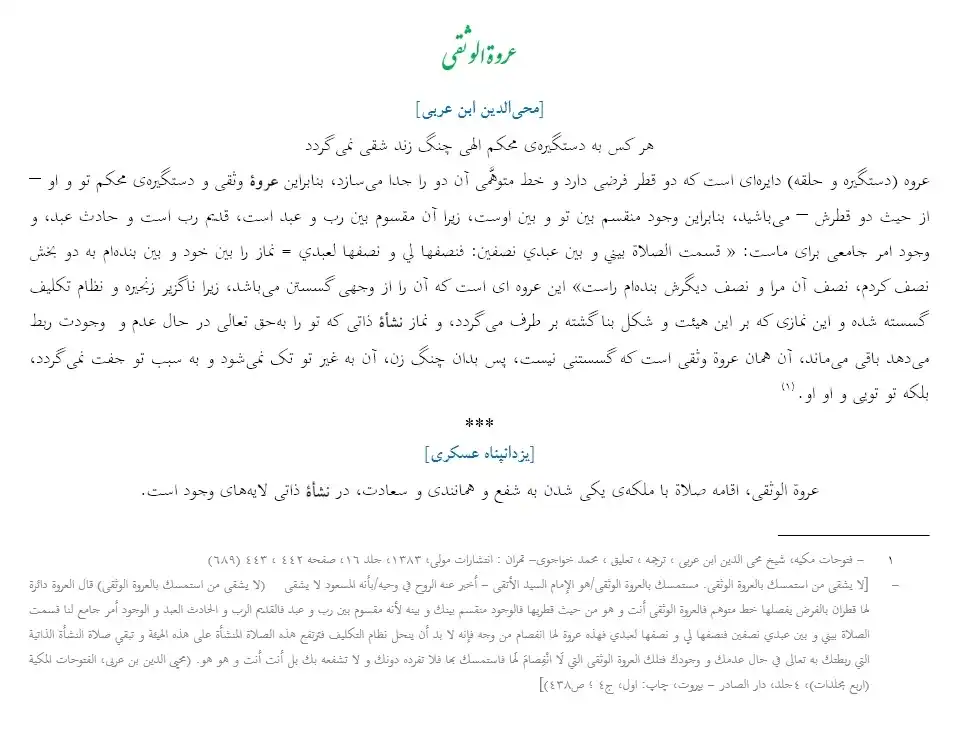 عروة الوثقی
[محی‌الدین ابن عربی]
هر کس به دستگیره‌ی محکم الهی چنگ زند شقی نمی‌گردد
عروه (دستگیره و حلقه) دایره‌ای است که دو قطر فرضی دارد و خط متوهَّمی آن دو را جدا می‌سازد، بنابراین عروهٔ وثقی و دستگیره‌ی محکم تو و او –
از حیث دو قطرش – می‌باشید، بنابراین وجود منقسم بین تو و بین اوست، زیرا آن مقسوم بین رب و عبد است، قدیم رب است و حادث عبد، و
وجود امر جامعی برای ماست: « قسمت الصلاة بيني و بين عبدي نصفين: فنصفها لي و نصفها لعبدي = نماز را بین خود و بین بنده‌ام به دو بخش
نصف کردم، نصف آن مرا و نصف دیگرش بنده‌ام راست» این عروه ای است که آن را از وجهی گسستن می‌باشد، زیرا ناگزیر زنجیره و نظام تکلیف
گسسته شده و این نمازی که بر این هیئت و شکل بنا گشته بر طرف می‌گردد، و نماز نشأهٔ ذاتی که تو را به‌حق تعالی در حال عدم و وجودت ربط
می‌دهد باقی می‌ماند، آن همان عروة وثقی است که گسستنی نیست، پس بدان چنگ زن، آن به غیر تو تک نمی‌شود و به سبب تو جفت نمی‌گردد،
بلکه تو تویی و او او. (۱)
***
[یزدانپناه عسکری]
عروة الوثقی، اقامه صلاة با ملکه‌ی یکی شدن به شفع و همانندی و سعادت، در نشأهٔ ذاتی لایه‌های وجود است.
۱ – فتوحات مکیه، شیخ محی الدین ابن عربی ، ترجمه ، تعلیق ، محمد خواجوی– تهران : انتشارات مولی، ۱۳۸۳، جلد ۱۶، صفحه ۴۴۲ ، ۴۴۳ (۶۸۹)
– [لا يشقى من استمسك بالعروة الوثقى. مستمسك بالعروة الوثقى/هو الإمام السيد الأتقى – أخبر عنه الروح في وحيه/بأنه المسعود لا يشقى (لا يشقى من استمسك بالعروة الوثقى) قال العروة دائرة
لها قطران بالفرض يفصلها خط متوهم فالعروة الوثقى أنت و هو من حيث قطريها فالوجود منقسم بينك و بينه لأنه مقسوم بين رب و عبد فالقديم الرب و الحادث العبد و الوجود أمر جامع لنا قسمت
الصلاة بيني و بين عبدي نصفين فنصفها لي و نصفها لعبدي فهذه عروة لها انفصام من وجه فإنه لا بد أن ينحل نظام التكليف فترتفع هذه الصلاة المنشأة على هذه الهيئة و تبقي صلاة النشأة الذاتية
التي ربطتك به تعالى في حال عدمك و وجودك فتلك العروة الوثقى التي لَا انْفِصامَ لَها فاستمسك بها فلا تفرده دونك و لا تشفعه بك بل أنت أنت و هو هو. (محيي الدين بن عربى، الفتوحات المكية
(اربع مجلدات)، ٤جلد، دار الصادر – بيروت، چاپ: اول، ج٤ ؛ ص٤٣٨)]